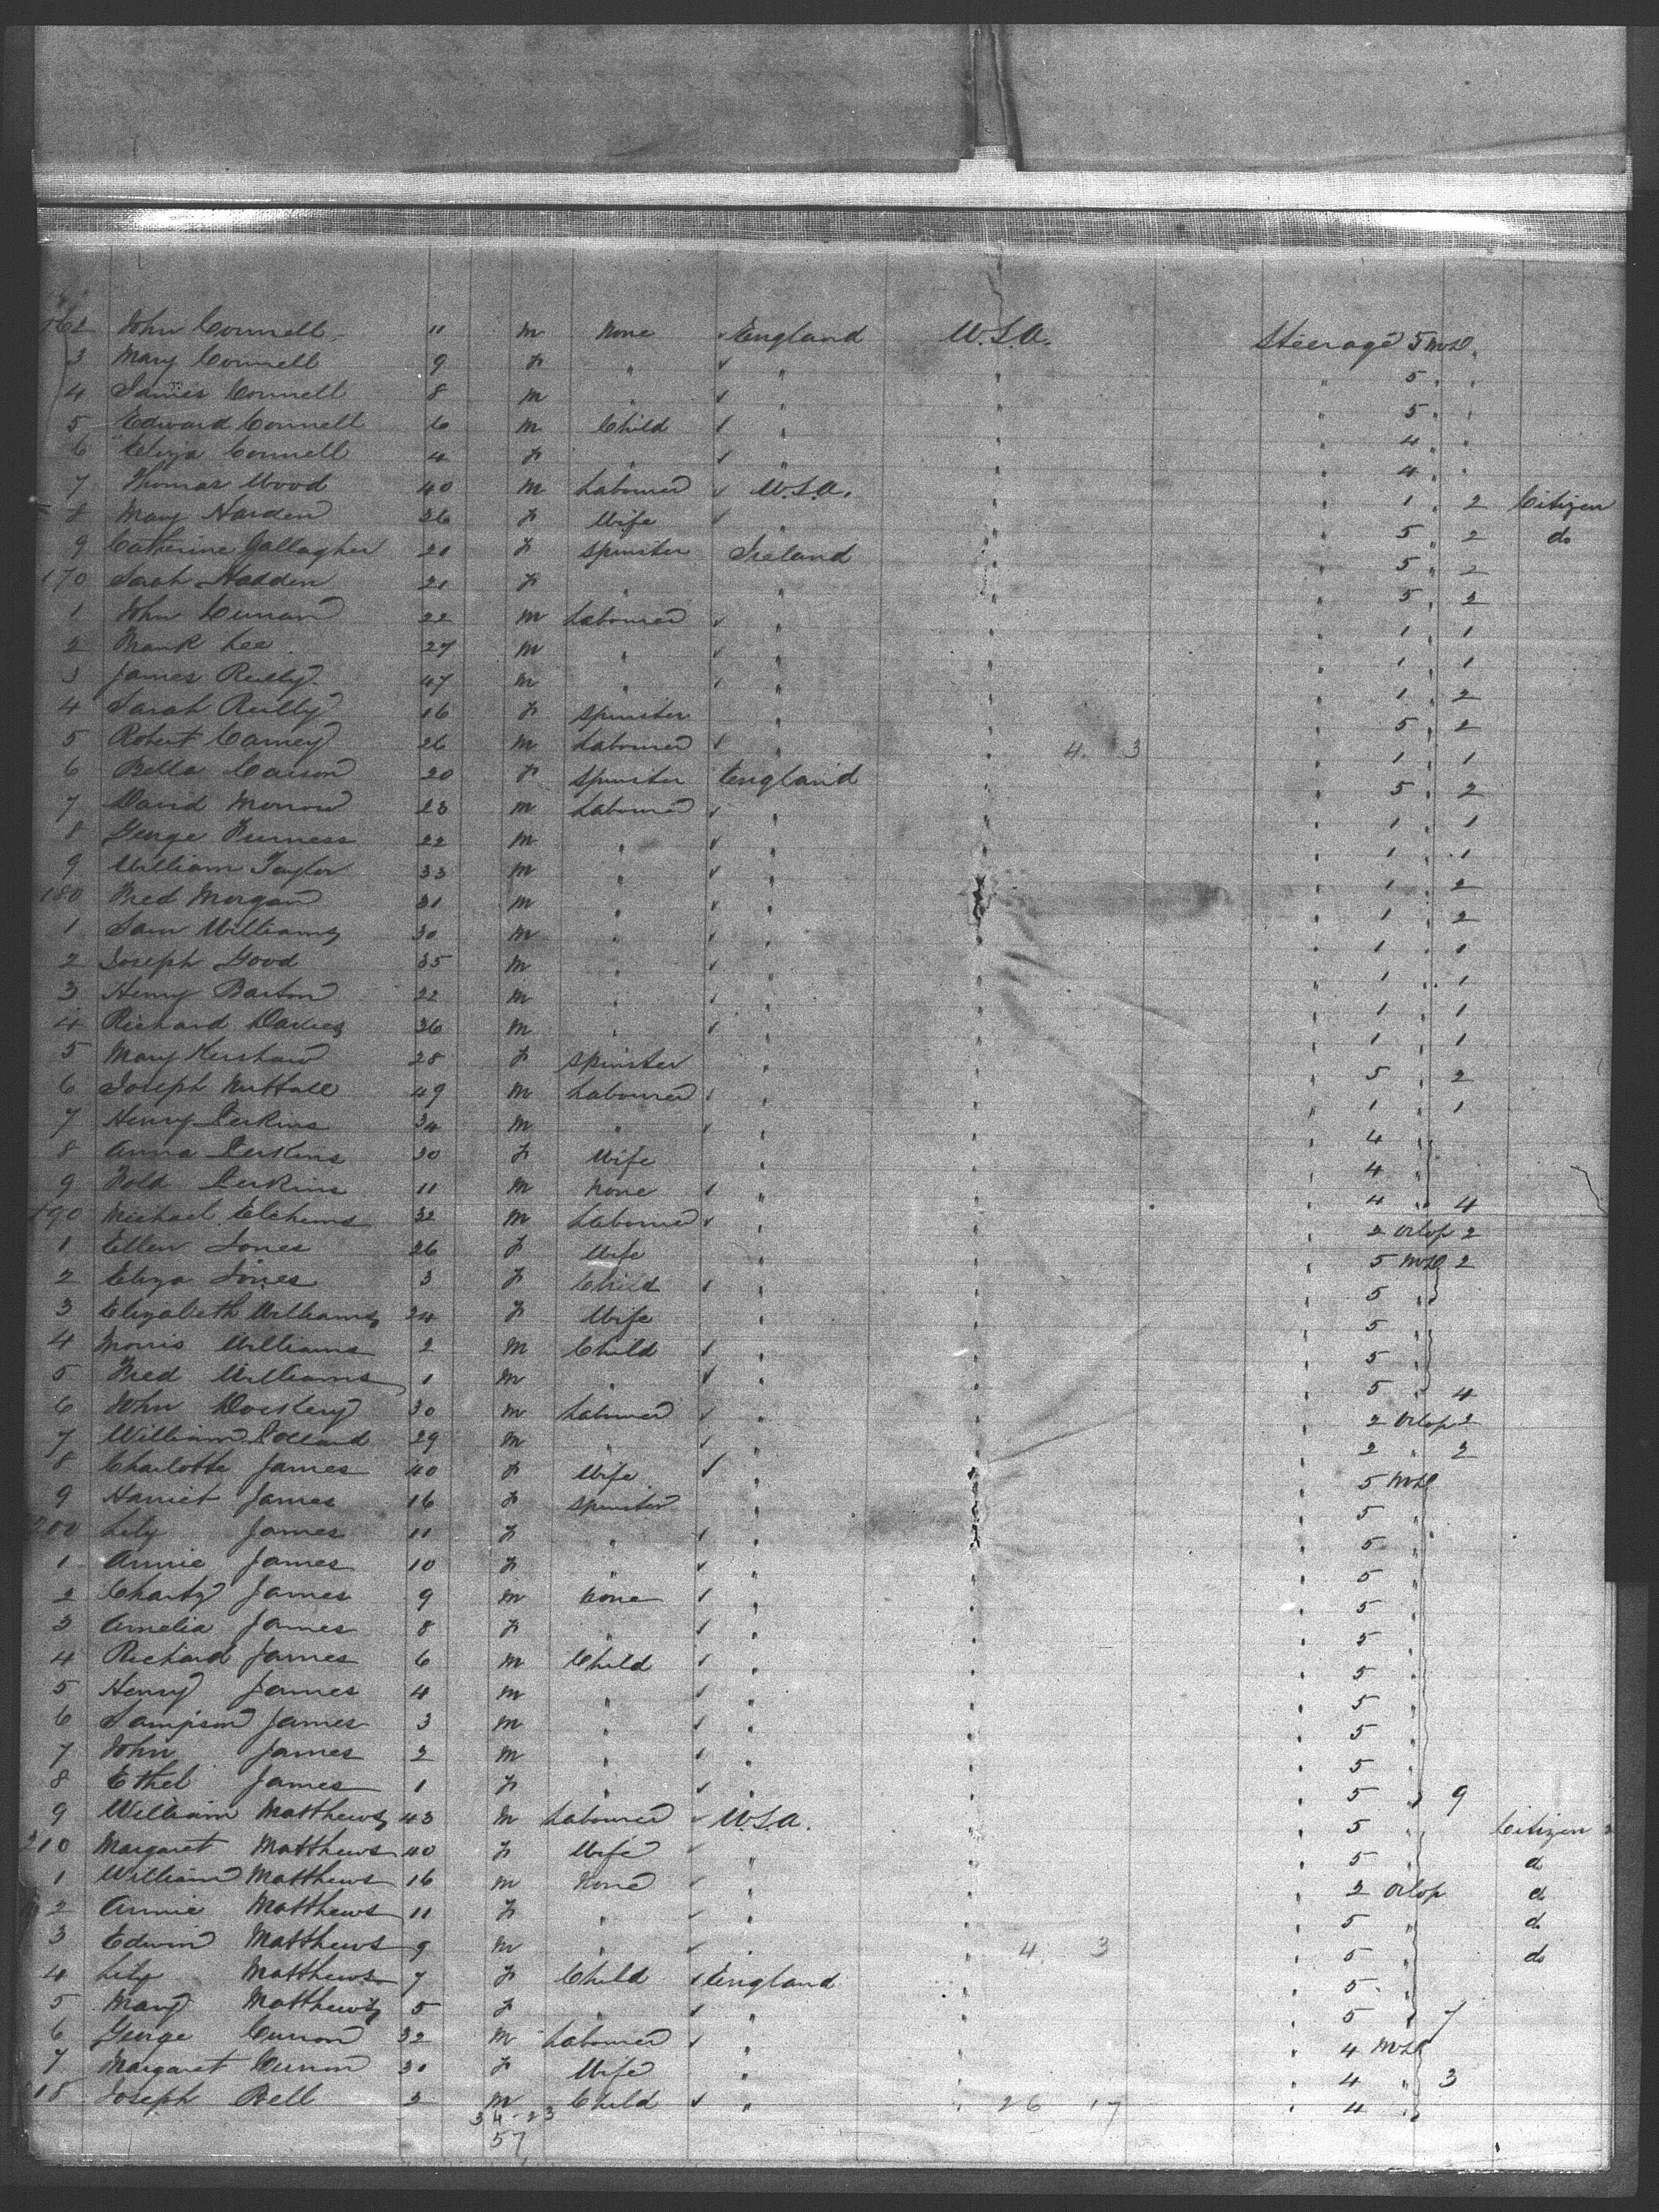 162 John Connell 11 m None England U.S.A. Steerage 5 MD
3 Mary Connell 9 f " " " " 5 "
4 James Connell 8 m " " " " 5 "
5 Edward Connell 6 m Child " " " 4 "
6 Eliza Connell 4 f " " " " 4 "
7 Thomas Wood 40 m Labourer U.S.A. " " 1 " 2 Citizen
8 Mary Harden 36 f Wife " " " 5 " 2 do
9 Catherine Gallagher 21 f Spinster Ireland " " 5 " 2
170 Sarah Hadden 21 f " " " " 5 " 2
1 John Curran 22 m Labourer " " " 1 " 1
2 Frank Lee 27 m " " " " 1 " 1
3 James Reilly 47 m " " " " 1 " 2
4 Sarah Reilly 16 f Spinster " " " 5 " 2
5 Robert Carney 26 m Labourer " " 4 3 " 1 " 1
6 Bella Carson 20 f Spinster England " " 5 " 2
7 David Morrow 23 m Labourer " " " 1 " 1
8 George Furness 22 m " " " " 1 " 1
9 William Taylor 33 m " " " " 1 " 2
180 Fred Morgan 31 m " " " " 1 " 2
1 Sam Williams 30 m " " " " 1 " 1
2 Joseph Good 35 m " " " " 1 " 1
3 Henry Barton 22 m " " " " 1 " 1
4 Richard Davies 36 m " " " " 1 " 1
5 Mary Kershaw 28 f Spinster " " " 5 " 2
6 Joseph Nuttall 49 m Labourer " " " 1 " 1
7 Henry Perkins 34 m " " " " 4 "
8 Anna Perkins 30 f Wife " " " 4 "
9 Perkins 11 m None " " " 4 " 4
190 Michael 32 m Labourer " " " 2 Orlop 2
1 Ellen Jones 26 f Wife " " " 5 MD 2
2 Eliza Jones 3 f Child " " " 5 "
3 Elizabeth Williams 24 f Wife " " " 5 "
4 Morris Williams 2 m Child " " " 5 "
5 Fred Williams 1 m " " " " 5 " 4
6 John 30 m Labourer " " " 2 Orlop 2
7 William Pollard 29 m " " " " 2 " 2
8 Charlotte James 40 f Wife " " " 5 MD
9 Harriet James 16 f Spinster " " " 5 "
200 Lily James 11 f " " " " 5 "
1 Annie James 10 f " " " " 5 "
2 James 9 m None " " " 5 "
3 Amelia James 8 f " " " " 5 "
4 Richard James 6 m Child " " " 5 "
5 Henry James 4 m " " " " 5 "
6 Sampson James 3 m " " " " 5 "
7 John James 2 m " " " " 5 "
8 Ethel James 1 f " " " " 5 " 9
9 William Matthews 43 m Labourer U.S.A. " " 5 " Citizen
210 Margaret Matthews 40 f Wife " " " 5 " do
1 William Matthews 16 m None " " " 2 Orlop do
2 Annie Matthews 11 f " " " " 5 " do
3 Edwin Matthews 9 m " " " 4 3 " 5 " do
4 Lily Matthews 7 f Child England " " 5 "
5 Mary Matthews 5 f " " " " 5 " 7
6 George Curron 32 m Labourer " " " 4 MD
7 Margaret Curron 30 f Wife " " " 4 " 3
218 Joseph Bell 2 m Child " " 26 17 " 4 "
34-23
57